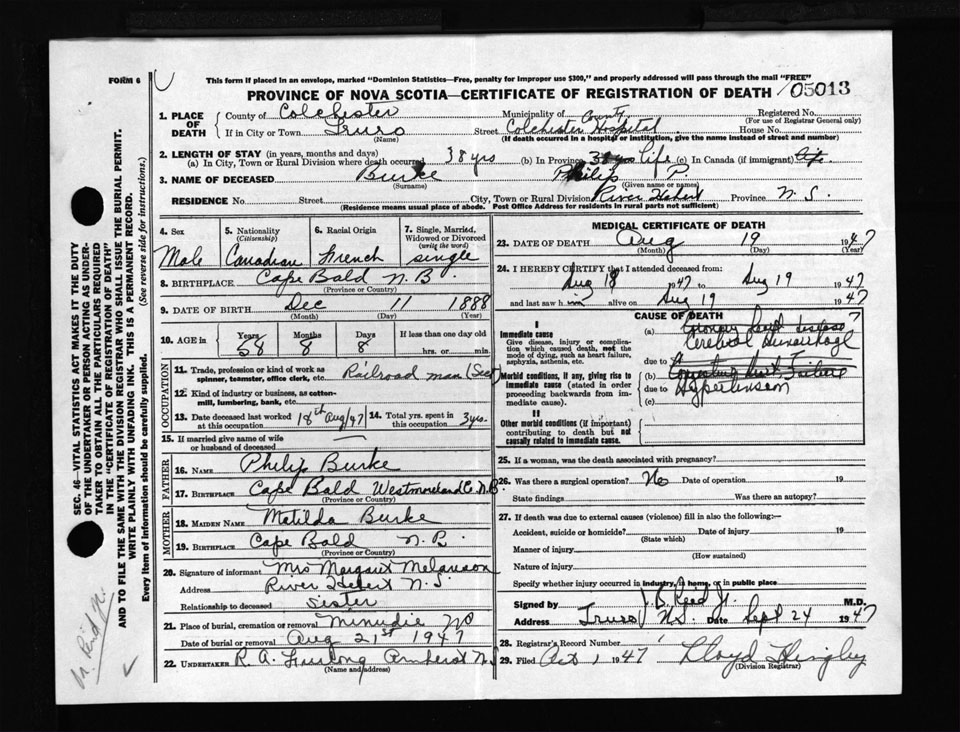 FORM 6
This form if placed in an envelope, marked "Dominion Statistics—Free, penalty for improper use $300," and properly addressed will pass through the mail "FREE"
PROVINCE OF NOVA SCOTIA—CERTIFICATE OF REGISTRATION OF DEATH 05013
1. PLACE OF DEATH
County of Colchester Municipality of County Registered No.
(For use of Registrar General only)
If in City or Town Truro Street Colchester Hospital House No.
(Name) (If death occurred in a hospital or institution, give the name instead of street and number)
2. LENGTH OF STAY (in years, months and days)
(a) In City, Town or Rural Division where death occurred 38 yrs (b) In Province life (c) In Canada (if immigrant) life.
3. NAME OF DECEASED Burke Philip P.
(Surname) (Given name or names)
RESIDENCE No. Street City, Town or Rural Division River Hebert Province N. S.
(Residence means usual place of abode. Post Office Address for residents in rural parts not sufficient)
4. Sex Male
5. Nationality (Citizenship) Canadian
6. Racial Origin French
7. Single, Married, Widowed or Divorced (write the word) single
8. BIRTHPLACE Cape Bald N. B.
(Province or Country)
9. DATE OF BIRTH Dec 11 1888
(Month) (Day) (Year)
10. AGE in Years Months Days If less than one day old
58 8 8 hrs. or min.
OCCUPATION
11. Trade, profession or kind of work as spinner, teamster, office clerk, etc. Railroad man (Sect)
12. Kind of industry or business, as cotton-mill, lumbering, bank, etc.
13. Date deceased last worked at this occupation 18th Aug/47 14. Total yrs. spent in this occupation 3yrs.
15. If married give name of wife or husband of deceased
FATHER
16. NAME Philip Burke
17. BIRTHPLACE Cape Bald Westmoreland C. N.B.
(Province or Country)
MOTHER
18. MAIDEN NAME Matilda Burke
19. BIRTHPLACE Cape Bald N. B.
(Province or Country)
20. Signature of informant Mrs Margaret Melanson
Address River Hebert N. S.
Relationship to deceased sister
21. Place of burial, cremation or removal Minudie NS
Date of burial or removal Aug 21st 1947
22. UNDERTAKER R. A. Furlong Amherst N.S
(Name and address)
MEDICAL CERTIFICATE OF DEATH
23. DATE OF DEATH Aug 19 1947
(Month) (Day) (Year)
24. I HEREBY CERTIFY that I attended deceased from:
Aug 18 1947 to Aug 19 1947
and last saw him alive on Aug 19 1947
CAUSE OF DEATH
I
Immediate cause
Give disease, injury or complication which caused death, not the mode of dying, such as heart failure, asphyxia, asthenia, etc.
(a) Coronary heart disease
Cerebral Hemorrhage
due to
Morbid conditions, if any, giving rise to immediate cause (stated in order proceeding backwards from immediate cause).
(b) Congestive Heart Failure
due to Hypertension
(c)
II
Other morbid conditions (if important) contributing to death but not causally related to immediate cause.
25. If a woman, was the death associated with pregnancy?
26. Was there a surgical operation? No Date of operation 19
State findings Was there an autopsy?
27. If death was due to external causes (violence) fill in also the following:—
Accident, suicide or homicide? Date of injury 19
(State which)
Manner of injury
(How sustained)
Nature of injury
Specify whether injury occurred in industry, home, or in public place
Signed by J. B. Reid Jr. M.D.
Address Truro NS. Date Sept 24 1947
28. Registrar's Record Number
29. Filed Oct 1 1947 Lloyd
(Division Registrar)
SEC. 46—VITAL STATISTICS ACT MAKES IT THE DUTY
OF THE UNDERTAKER OR PERSON ACTING AS UNDER-
TAKER TO OBTAIN ALL THE PARTICULARS REQUIRED
IN THE "CERTIFICATE OF REGISTRATION OF DEATH"
AND TO FILE THE SAME WITH THE DIVISION REGISTRAR WHO SHALL ISSUE THE BURIAL PERMIT.
WRITE PLAINLY WITH UNFADING INK. THIS IS A PERMANENT RECORD.
Every item of information should be carefully supplied. (See reverse side for instructions.)